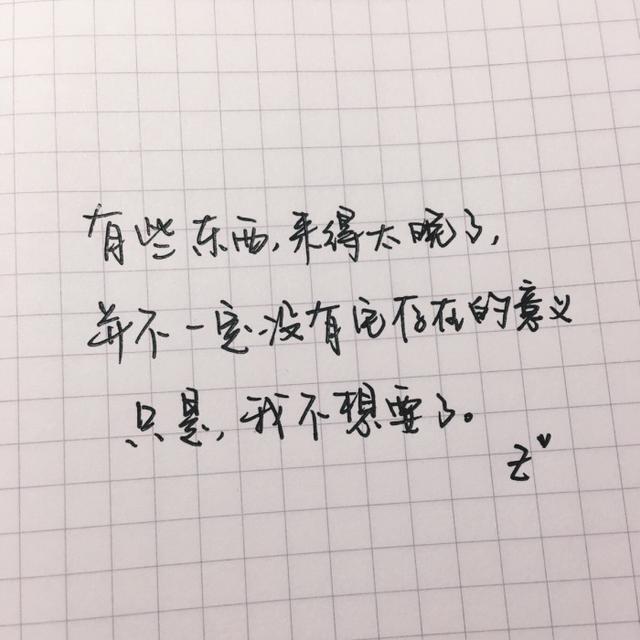 有些东西,来得太晚了,
并不一定没有它存在的意义
只是,我不想要了。
Z